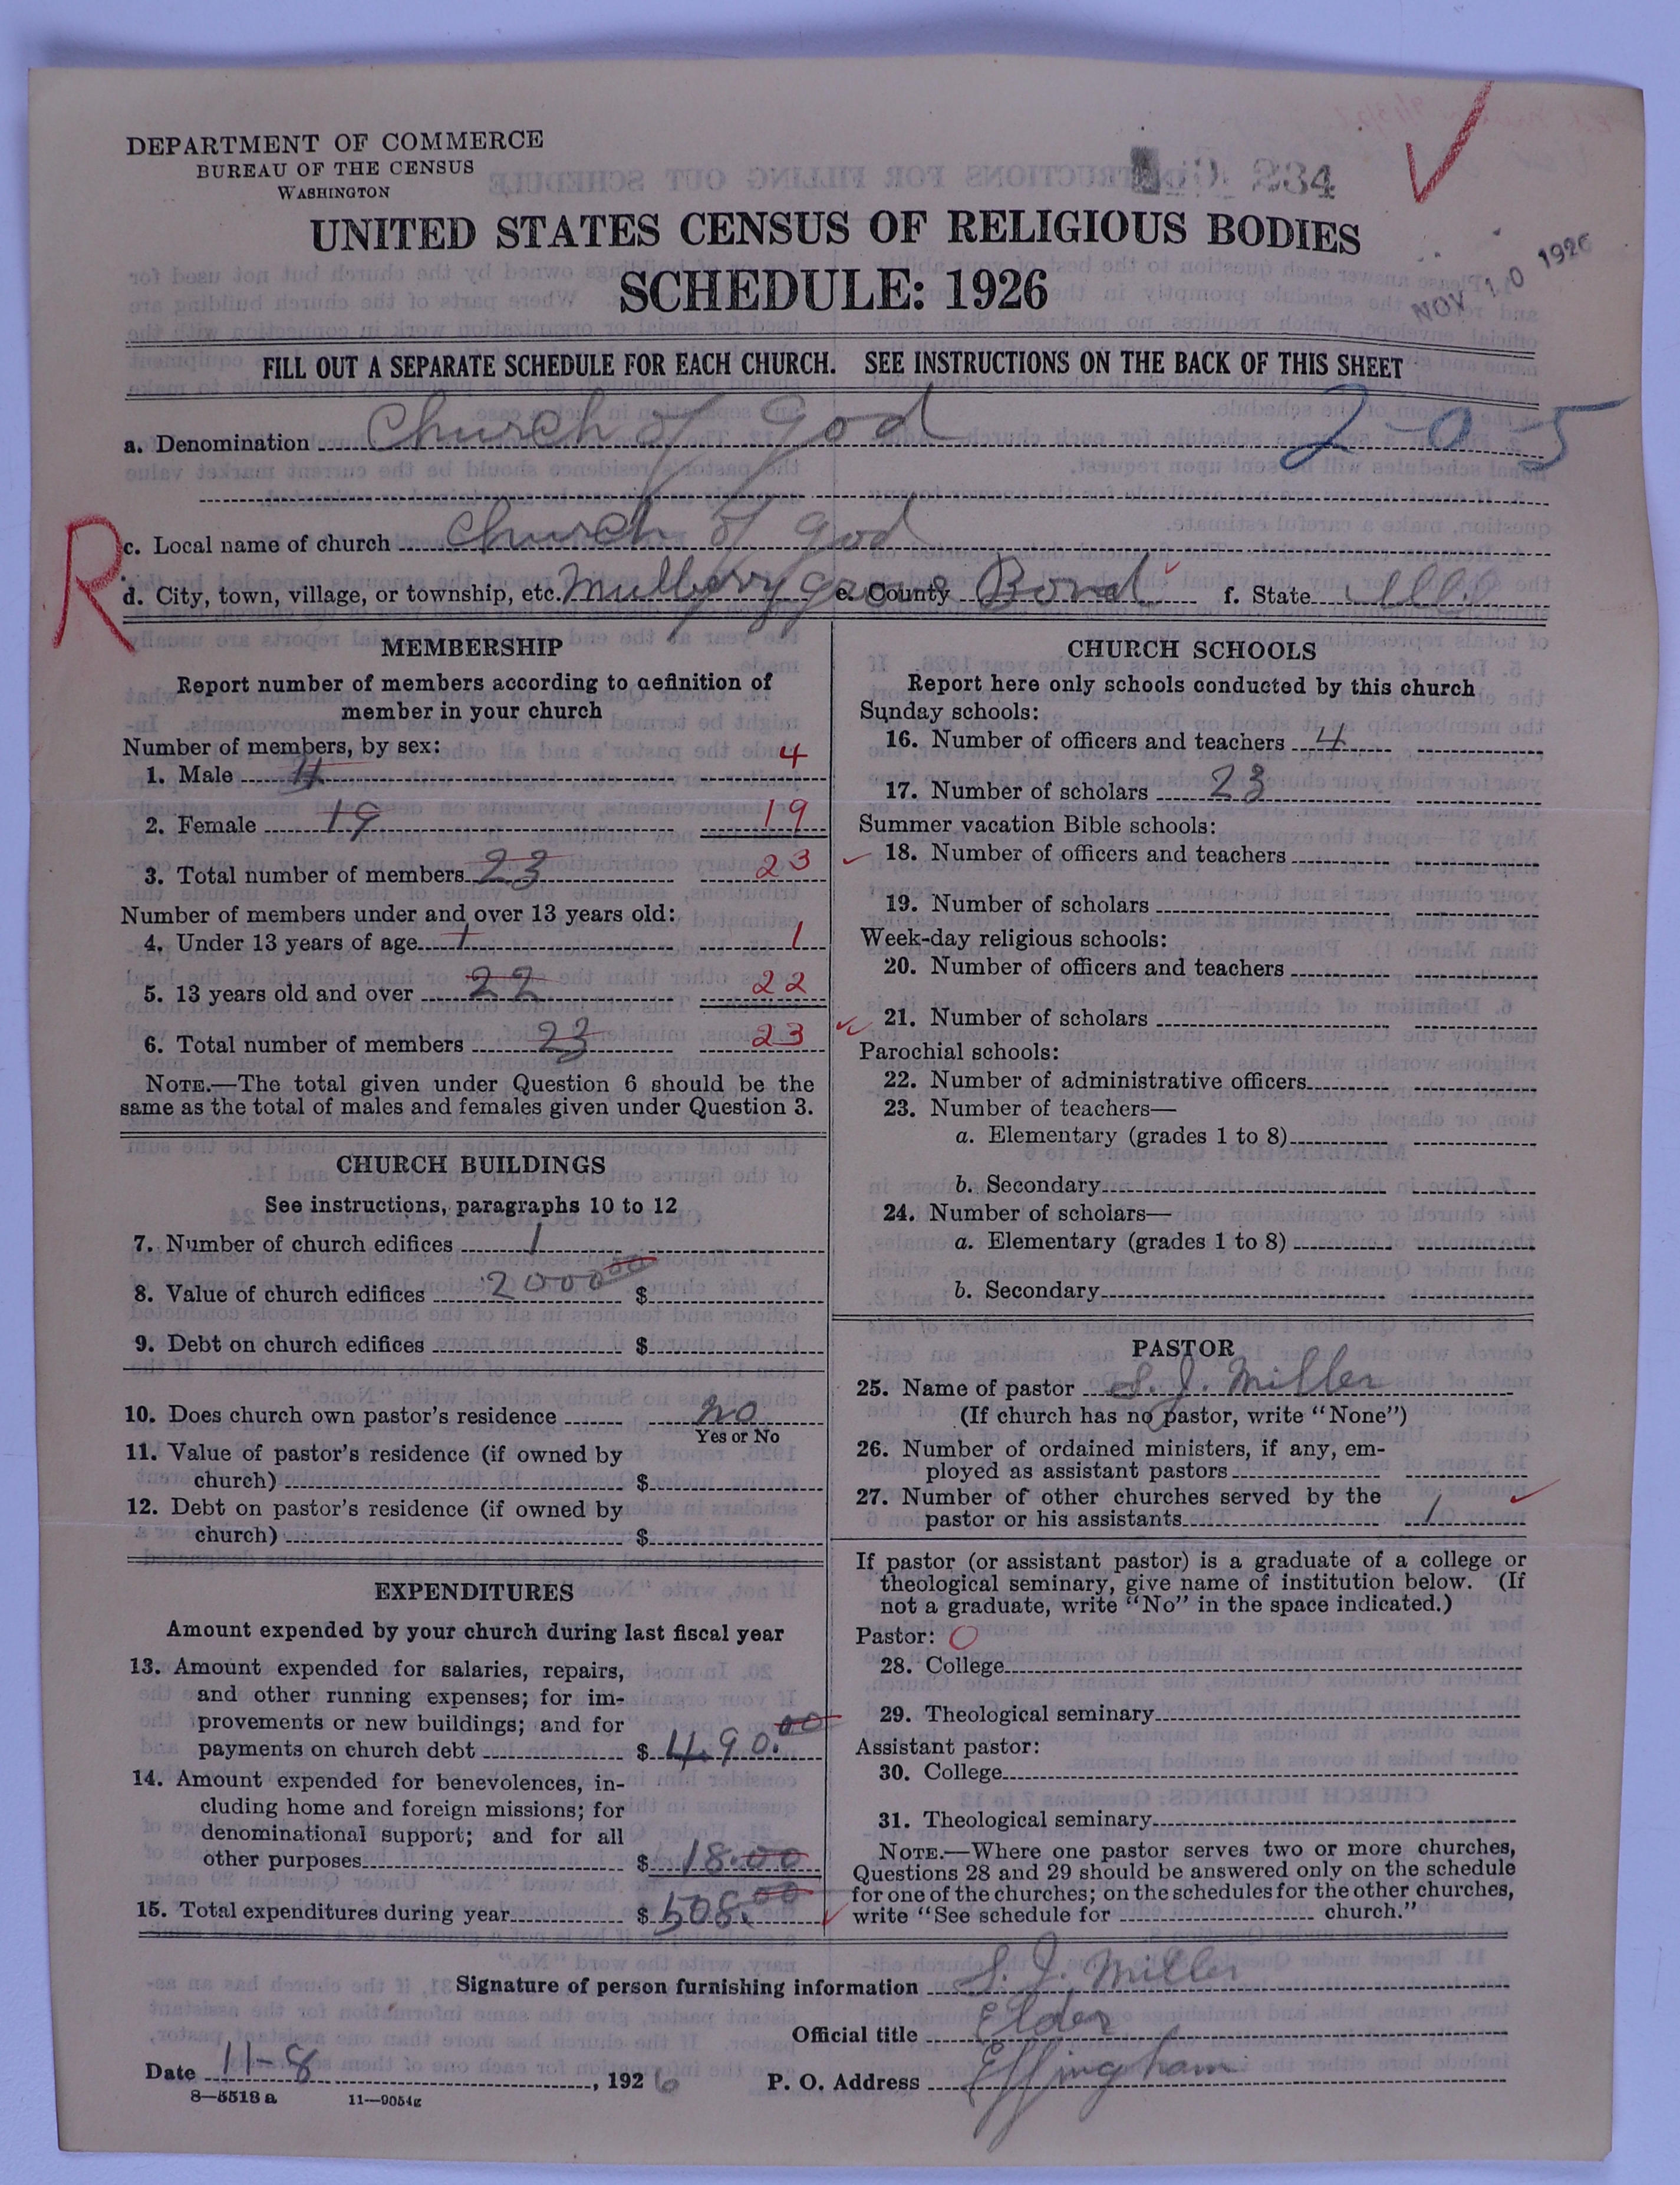 DEPARTMENT OF COMMERCE
BUREAU OF THE CENSUS
WASHINGTON
234
UNITED STATES CENSUS OF RELIGIOUS BODIES
SCHEDULE: 1926
NOV 10 1926
FILL OUT A SEPARATE SCHEDULE FOR EACH CHURCH. SEE INSTRUCTIONS ON THE BACK OF THIS SHEET
a. Denomination Church of God 2-05
R
c. Local name of church Church of God
d. City, town, village, or township, etc. Mulberry grove e. County Bond f. State Ill
MEMBERSHIP
Report number of members according to definition of
member in your church
Number of members, by sex:
1. Male 4 4
2. Female 19 19
3. Total number of members 23 23
Number of members under and over 13 years old:
4. Under 13 years of age 1 1
5. 13 years old and over 22 22
6. Total number of members 23 23
NOTE.—The total given under Question 6 should be the
same as the total of males and females given under Question 3.
CHURCH BUILDINGS
See instructions, paragraphs 10 to 12
7. Number of church edifices 1
8. Value of church edifices 2000 00 $
9. Debt on church edifices $
10. Does church own pastor's residence no
Yes or No
11. Value of pastor's residence (if owned by
church) $
12. Debt on pastor's residence (if owned by
church) $
EXPENDITURES
Amount expended by your church during last fiscal year
13. Amount expended for salaries, repairs,
and other running expenses; for im-
provements or new buildings; and for
payments on church debt $ 490.00
14. Amount expended for benevolences, in-
cluding home and foreign missions; for
denominational support; and for all
other purposes $ 18.00
15. Total expenditures during year $ 508.00
CHURCH SCHOOLS
Report here only schools conducted by this church
Sunday schools:
16. Number of officers and teachers 4
17. Number of scholars 23
Summer vacation Bible schools:
18. Number of officers and teachers
19. Number of scholars
Week-day religious schools:
20. Number of officers and teachers
21. Number of scholars
Parochial schools:
22. Number of administrative officers
23. Number of teachers—
a. Elementary (grades 1 to 8)
b. Secondary
24. Number of scholars—
a. Elementary (grades 1 to 8)
b. Secondary
PASTOR
25. Name of pastor S. J. Miller
(If church has no pastor, write "None")
26. Number of ordained ministers, if any, em-
ployed as assistant pastors
27. Number of other churches served by the
pastor or his assistants 1
If pastor (or assistant pastor) is a graduate of a college or
theological seminary, give name of institution below. (If
not a graduate, write "No" in the space indicated.)
Pastor: O
28. College
29. Theological seminary
Assistant pastor:
30. College
31. Theological seminary
NOTE.—Where one pastor serves two or more churches,
Questions 28 and 29 should be answered only on the schedule
for one of the churches; on the schedules for the other churches,
write "See schedule for church."
Signature of person furnishing information S. J. Miller
Official title Elder
Date 11-8, 1926 P. O. Address Effingham
8—5518 a 11—9054g